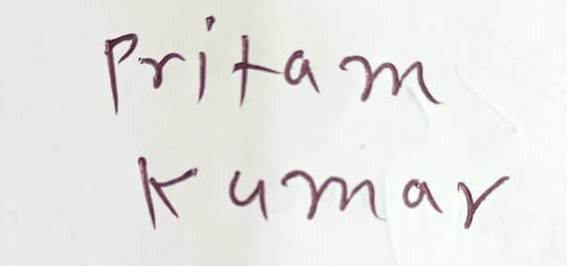 Pritam
Kumar